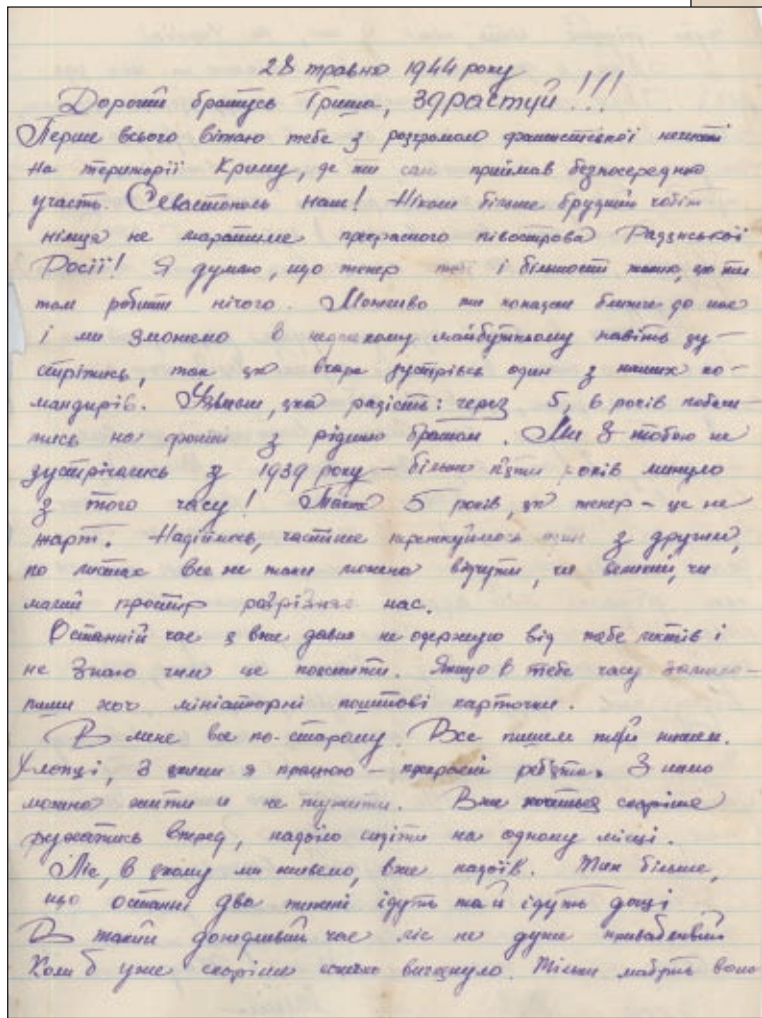 28 травня 1944 року
Дорогий братусь Гриша, здрастуй!!!
Перше всього вітаю тебе з розгромом фашистської нечисті
на території Криму, де ти сам приймав безпосередню
участь. Севастополь наш! Ніколи більше брудний чобіт
німця не маратиме прекрасного півострова Радянської
Росії! Я думаю, що тепер і більшості що ти
там робити нічого. Можливо ти попадеш ближче до нас
і ми зможемо в недалекому майбутньому навіть зу-
стрітись, так як вчора зустрівсь один з наших ко-
мандирів. Уявити, яка радість: через 5, 6 років побачи-
тись на фронті з рідним братом. Ми з тобою не
зустрічались з 1939 року – більше п'яти років минуло
з того часу! 5 років, як тепер – це не
жарт. Надіймось, частіше один з другим,
по листах все ж таки можна відчути, чи великий, чи
малий простір розрізняє нас.
Останній час я вже давно не одержую від тебе листів і
не знаю чим це пояснити. Якщо в тебе часу замало –
пиши хоч мініатюрні поштові карточки.
В мене все по-старому. Все пишем тай пишем.
Хлопці, з якими я працюю – прекрасні ребята. З ними
можно жити и не тужити. Вже хочиться скоріше
рухатись вперед, надоїло сидіти на одному місці.
Ліс, в якому ми живемо, вже надоїв. Тим більше,
що останні два тижні ідуть та й ідуть дощі
В такий дождливий час ліс не дуже привабливий
Коли б уже скоріш сонечко виглянуло. Тільки мабуть воно